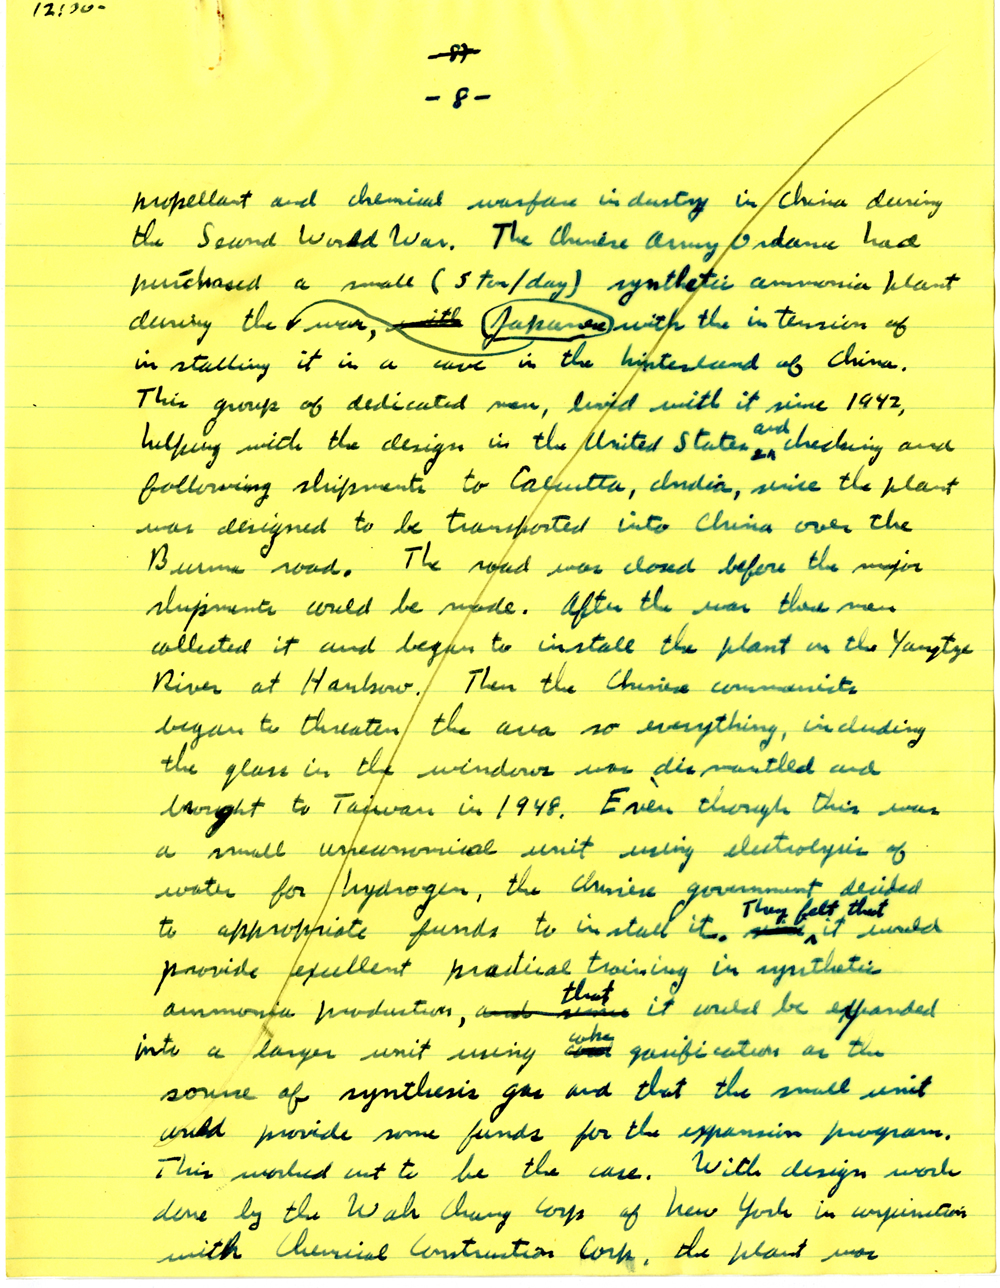 12:30-
8)
- 8 -
propellant and chemical warfare industry in China during
the Second World War. The Chinese Army Ordance had
purchased a small (5 ton/day) synthetic ammonia plant
during the war, with Japanese with the intension of
installing it in a cave in the hinterland of China.
This group of dedicated men, lived with it since 1942,
helping with the design in the United States and checking and
following shipments to Calcutta, India, since the plant
was designed to be transported into China over the
Burma road. The road was closed before the major
shipments could be made. After the war these men
collected it and began to install the plant on the Yangtze
River at Hankow. Then the Chinese communists
began to threaten the area so everything, including
the glass in the windows was dismantled and
brought to Taiwan in 1948. Even though this was
a small uneconomical unit using electrolysis of
water for hydrogen, the Chinese government decided
to appropriate funds to install it. They felt that it would
provide excellent practical training in synthetic
ammonia production, and since that it could be expanded
into a larger unit using coal coke gasification as the
source of synthesis gas and that the small unit
could provide some funds for the expansion program.
This worked out to be the case. With design work
done by the Wah Chang Corp of New York in conjunction
with Chemical Construction Corp, the plant was